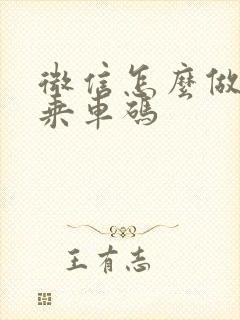 微信怎麼做
乘車碼
王有志